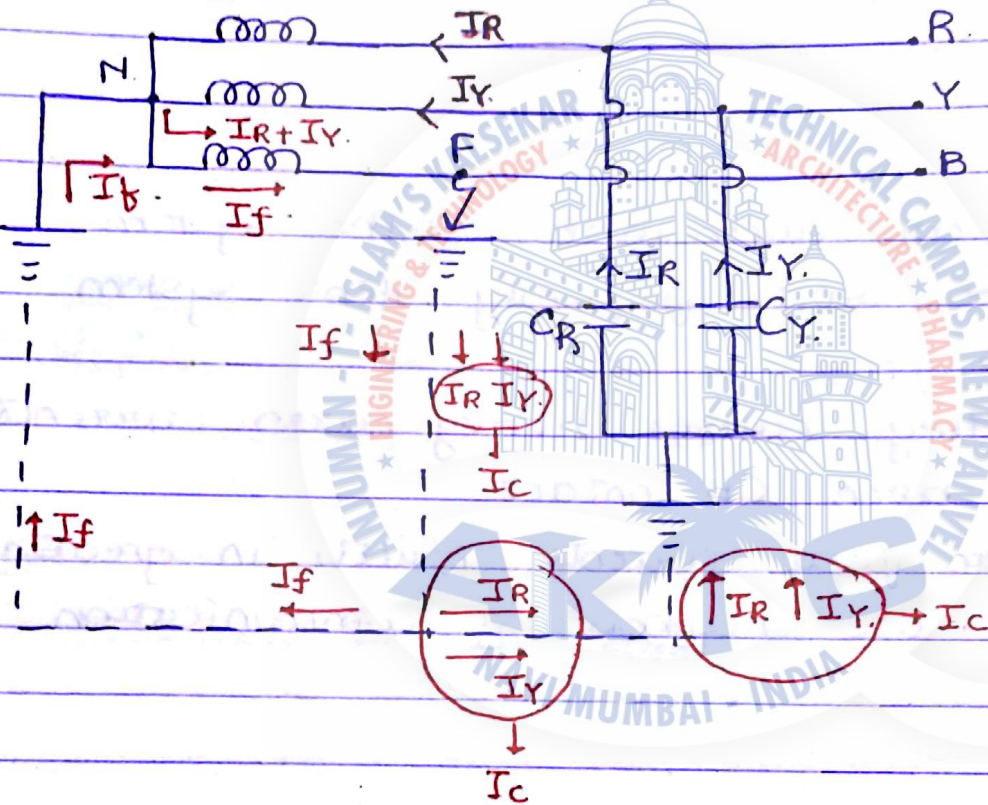 IR R
N IY Y
IR + IY.
F B
If.
If.
IR IY.
CR CY.
If
IR IY.
IC
If
If IR
IY
IR IY. IC
IC
ANJUMAN - I - ISLAM'S KALSEKAR TECHNICAL CAMPUS, NEW PANVEL
ENGINEERING & TECHNOLOGY ★ ★ ARCHITECTURE ★ PHARMACY ★
AKTC
NAVI MUMBAI - INDIA